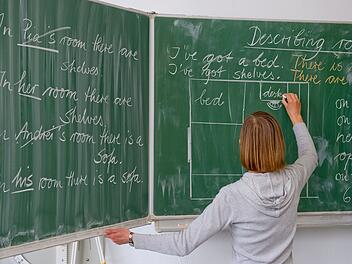 In Pia's room there are
shelves.
In her room there are
shelves.
In André's room there is a
sofa.
In his room there is a sofa.
Describing ro
I've got a bed. There is
I've got shelves. There are
bed
desk
on
on
in